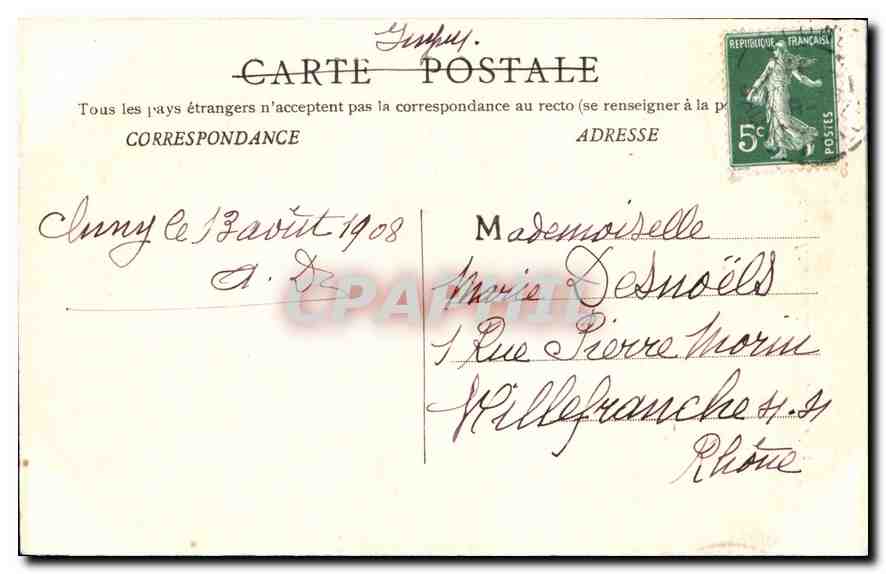 CARTE POSTALE
Tous les pays étrangers n'acceptent pas la correspondance au recto (se renseigner à la po
CORRESPONDANCE
ADRESSE
REPUBLIQUE FRANÇAISE
5c
POSTES
Cluny le 13 août 1908
A. D
Mademoiselle
Marie Desnoëls
1 Rue Pierre Morin
Villefranche s. s
Rhône
CPAPHIL